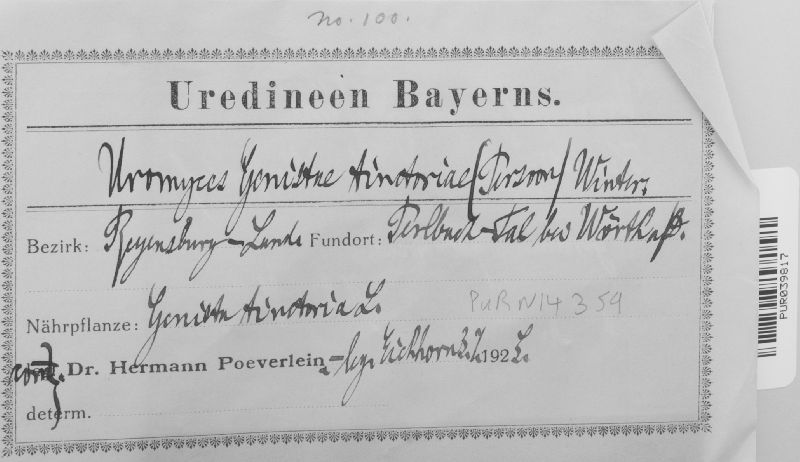 No. 100.
Uredineen Bayerns.
Uromyces Genistae tinctoriae (Persoon) Winter.
Bezirk: Regensburg-Land. Fundort: Perlbach-Tal bei Wörth a/D.
Nährpflanze: Genista tinctoria L.
PUR N14359
comm. Dr. Hermann Poeverlein. - leg. Eichhorn 192
determ.
PUR039817